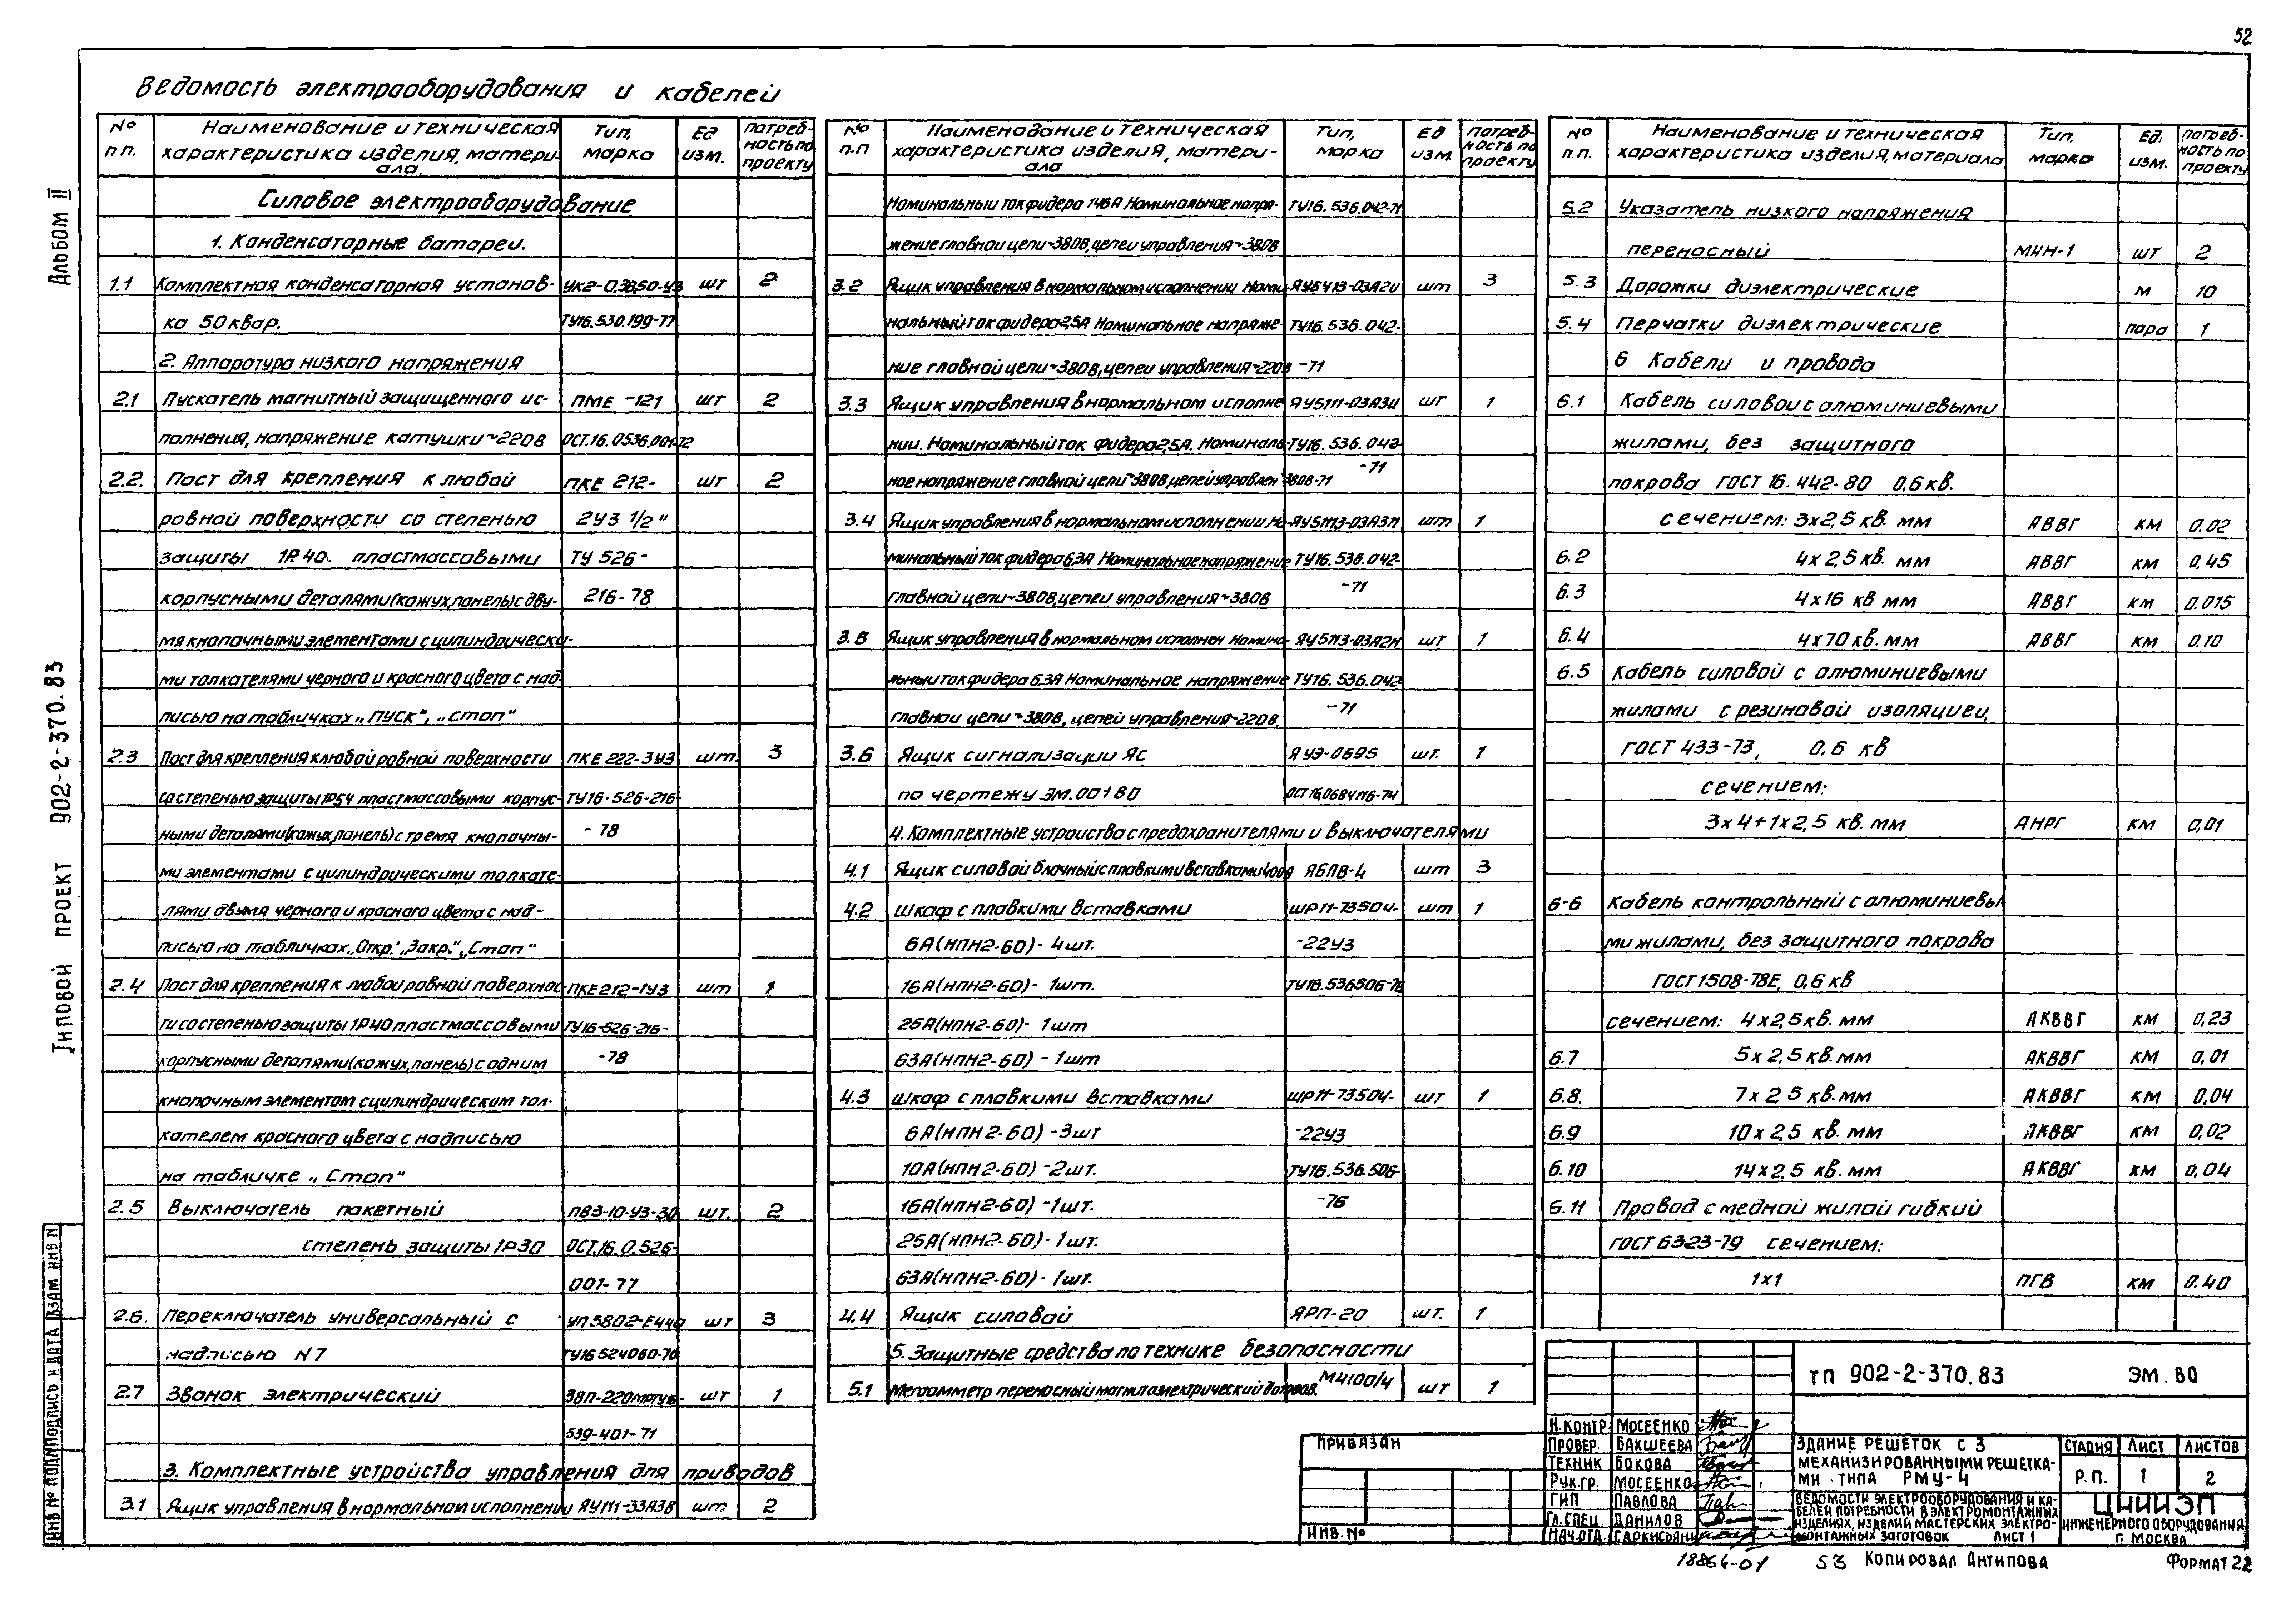 52
Ведомость электрооборудования и кабелей
№ п п.
Наименование и техническая характеристика изделия, материала.
Тип, марка
Ед изм.
Потребность по проекту
Силовое электрооборудование
1. Конденсаторные батареи.
1.1 Комплектная конденсаторная установ- УК2-0,38,50-У3 шт 2
ка 50 квар. ТУ16.530.199-77
2. Аппаратура низкого напряжения
2.1 Пускатель магнитный защищенного ис- ПМЕ-121 шт 2
полнения, напряжение катушки ~220В ОСТ.16.0536.001-72
2.2. Пост для крепления к любой ПКЕ 212- шт 2
ровной поверхности со степенью 2У3 1/2"
защиты 1Р.40. пластмассовыми ТУ 526-
корпусными деталями (кожух, панель) с дву- 216-78
мя кнопочными элементами с цилиндрически-
ми толкателями черного и красного цвета с над
писью на табличках „Пуск", „Стоп"
2.3 Пост для крепления к любой ровной поверхности ПКЕ 222-3У3 шт. 3
со степенью защиты 1Р54 пластмассовыми корпус- ТУ16-526-216-
ными деталями (кожух, панель) с тремя кнопочны- -78
ми элементами с цилиндрическими толкате-
лями двумя черного и красного цвета с над-
писью на табличках „Откр.", „Закр.", „Стоп"
2.4 Пост для крепления к любой ровной поверхнос- ПКЕ212-1У3 шт 1
ти со степенью защиты 1Р40 пластмассовыми ТУ16-526-216-
корпусными деталями (кожух, панель) с одним -78
кнопочным элементом с цилиндрическим тол-
кателем красного цвета с надписью
на табличке „Стоп"
2.5 Выключатель пакетный ПВ3-10-У3-30 шт. 2
степень защиты 1Р30 ОСТ.16.0.526-
001-77
2.6. Переключатель универсальный с УП5802-Е440 шт 3
надписью N7 ТУ16 524060-70
2.7 Звонок электрический шт 1
539-401-71
3. Комплектные устройства управления для приводов
3.1 Ящик управления в нормальном исполнении ЯУ111-33А3В шт 2
№ п.п
Наименование и техническая характеристика изделия, материала
Тип, марка
Ед изм.
потребность по проекту
Номинальный ток фидера 146А Номинальное напря- ТУ16.536.042-71
жение главной цепи ~380В, цепей управления ~380В
3.2 Ящик управления в нормальном исполнении Номи- ЯУ5413-03А2И шт 3
нальный ток фидера 2,5А Номинальное напряже- ТУ16.536.042-
ние главной цепи ~380В, цепей управления ~220В -71
3.3 Ящик управления в нормальном исполне ЯУ5111-03А3И шт 1
нии. Номинальный ток фидера 2,5А. Номиналь- ТУ16.536.042-
ное напряжение главной цепи ~380В, цепей управлен ~380В-71 -71
3.4 Ящик управления в нормальном исполнении, Но- ЯУ5113-03А3П шт 1
минальный ток фидера 6,3А Номинальное напряжение ТУ16.536.042-
главной цепи ~380В, цепей управления ~380В -71
3.5 Ящик управления в нормальном исполнен Номина- ЯУ5113-03А2М шт 1
льный ток фидера 6.3А Номинальное напряжение ТУ16.536.042
главной цепи ~380В, цепей управления ~220В. -71
3.6 Ящик сигнализации ЯС ЯУЭ-0695 шт. 1
по чертежу ЭМ.001 ВО ОСТ16.0684116-74
4. Комплектные устройства с предохранителями и выключателями
4.1 Ящик силовой блочный с плавкими вставками 400А ЯБПВ-4 шт 3
4.2 Шкаф с плавкими вставками ШР11-73504- шт 1
6А (НПН2-60) - 4шт. -22У3
16А (НПН2-60) - 1шт. ТУ16.536506-76
25А (НПН2-60) - 1шт
63А (НПН2-60) - 1шт
4.3 Шкаф с плавкими вставками ШР11-73504- шт 1
6А (НПН2-60) - 3шт -22У3
10А (НПН2-60) - 2шт. ТУ16.536.506-
16А (НПН2-60) - 1шт. -76
25А (НПН2-60) - 1шт.
63А (НПН2-60) - 1шт.
4.4 Ящик силовой ЯРП-20 шт. 1
5. Защитные средства по технике безопасности
5.1 Мегаомметр переносный магнитоэлектрический М4100/4 шт 1
№ п.п.
Наименование и техническая характеристика изделия, материала
Тип, марка
Ед. изм.
Потребность по проекту
5.2 Указатель низкого напряжения
переносный МИН-1 шт 2
5.3 Дорожки диэлектрические м 10
5.4 Перчатки диэлектрические пара 1
6 Кабели и провода
6.1 Кабель силовой с алюминиевыми
жилами, без защитного
покрова ГОСТ 16.442-80 0,6 кв.
сечением: 3х2,5 кв. мм АВВГ км 0.02
6.2 4х2,5 кв. мм АВВГ км 0,45
6.3 4х16 кв мм АВВГ км 0.015
6.4 4х70 кв. мм АВВГ км 0.10
6.5 Кабель силовой с алюминиевыми
жилами с резиновой изоляцией,
ГОСТ 433-73, 0.6 кв
сечением:
3х4+1х2,5 кв. мм АНРГ км 0,01
6-6 Кабель контрольный с алюминиевы
ми жилами, без защитного покрова
ГОСТ 1508-78Е, 0,6 кв
сечением: 4х2,5 кв. мм АКВВГ км 0,23
6.7 5х2,5 кв. мм АКВВГ км 0,01
6.8. 7х2,5 кв. мм АКВВГ км 0,04
6.9 10х2,5 кв. мм АКВВГ км 0,02
6.10 14х2,5 кв. мм АКВВГ км 0,04
6.11 Провод с медной жилой гибкий
ГОСТ 6323-79 сечением:
1х1 ПГВ км 0.40
Альбом II
Типовой проект 902-2-370.83
ИНВ № ПОДЛ ПОДПИСЬ И ДАТА ВЗАМ ИНВ N
ПРИВЯЗАН
ИНВ. №
Н.КОНТР. МОСЕЕНКО
ПРОВЕР. БАКШЕЕВА
ТЕХНИК БОКОВА
РУК.ГР. МОСЕЕНКО
ГИП ПАВЛОВА
ГЛ.СПЕЦ. ДАНИЛОВ
НАЧ.ОТД. САРКИСЯН
ТП 902-2-370.83 ЭМ.ВО
ЗДАНИЕ РЕШЕТОК С 3
МЕХАНИЗИРОВАННЫМИ РЕШЕТКА-
МИ ТИПА РМУ-4
СТАДИЯ ЛИСТ ЛИСТОВ
Р.П. 1 2
ВЕДОМОСТИ ЭЛЕКТРООБОРУДОВАНИЯ И КА-
БЕЛЕЙ ПОТРЕБНОСТИ В ЭЛЕКТРОМОНТАЖНЫХ
ИЗДЕЛИЯХ, ИЗДЕЛИЙ МАСТЕРСКИХ ЭЛЕКТРО-
МОНТАЖНЫХ ЗАГОТОВОК ЛИСТ 1
ЦНИИЭП
ИНЖЕНЕРНОГО ОБОРУДОВАНИЯ
Г. МОСКВА
18864-01 53 КОПИРОВАЛ АНТИПОВА ФОРМАТ 22